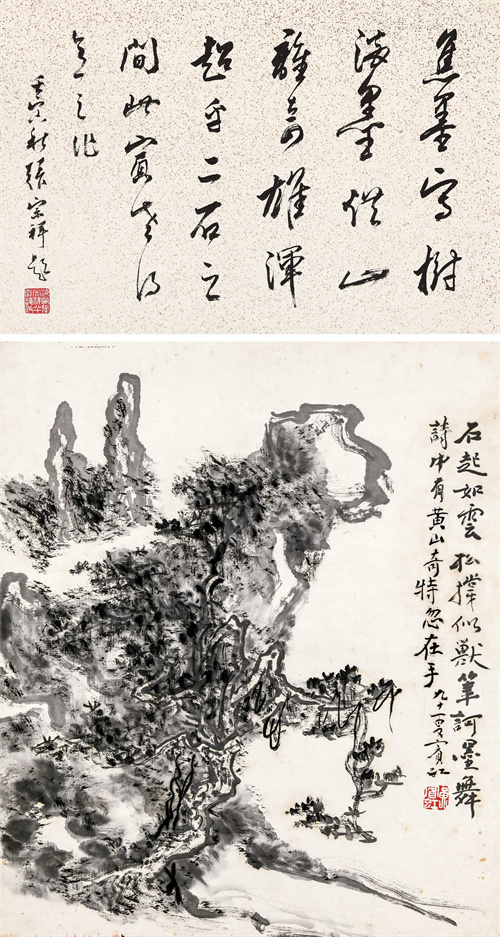 焦墨写樹
潑墨供山
離奇雄渾
超乎二石之
間此賓老得
意之作
壬寅秋張宗祥題
石起如雲松撐似獸筆訶墨舞
詩中有黃山奇特忽在手九十一叟賓虹
黃賓虹